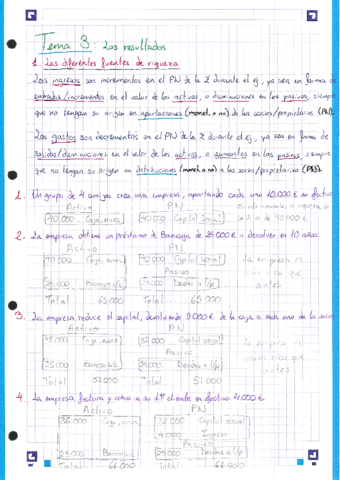 Tema 3: Los resultados
1. Las diferentes fuentes de riqueza
Los ingresos son incrementos en el PN de la E durante el ej., ya sea en forma de
entradas/incrementos en el valor de los activos, o disminuciones en los pasivos, siempre
que no tengan su origen en aportaciones (monet. o no) de los socios/propietarios (PN).
Los gastos son decrementos en el PN de la E durante el ej., ya sea en forma de
salidas/disminuciones en el valor de los activos, o aumentos en los pasivos, siempre
que no tengan su origen en distribuciones (monet. o no) a los socios/propietarios (PN).
1. Un grupo de 4 amigos crea una empresa, aportando cada uno 10.000 € en efectivo
Activo PN
40.000 Caja, euros 40.000 Capital Social
2. La empresa obtiene un préstamo de de 25.000 € a devolver en 10 años
Activo PN
40.000 Caja, euros 40.000 Capital Social
Pasivo
25.000 Bancos c/c 25.000 Deudas a l/p
Total 65.000 Total 65.000
La empresa es
que
antes
3. La empresa reduce el capital, devolviendo 2.000 € de la caja a cada uno de los socios
Activo PN
32.000 Caja, euros 32.000 Capital Social
Pasivo
25.000 Bancos c/c 25.000 Deudas a l/p
Total 57.000 Total 57.000
La empresa es
que
antes
4. La empresa factura y cobra a su 1er cliente en efectivo 4.000 €
Activo PN
36.000 Caja, euros 32.000 Capital social
4.000 Ingreso
Pasivo
25.000 Bancos c/c 25.000 Deudas a l/p
Total 61.000 Total 61.000